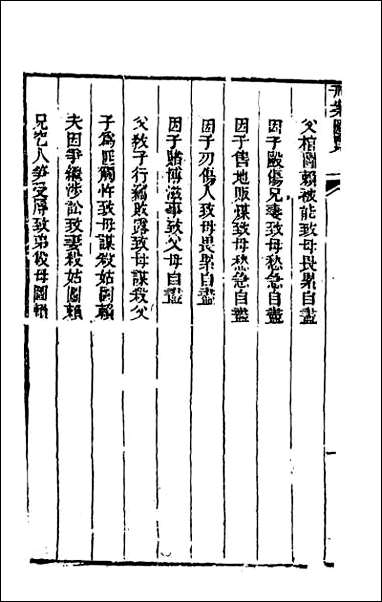 父棺圖賴被訛致母畏累自盡
因子毆傷兄妻致母愁急自盡
因子售地販煤致母愁急自盡
因子刃傷人致母畏累自盡
因子賭博滋事致父母自盡
父教子行竊敗露致母謀殺父
子爲匪觸忤致母謀殺姑圖賴
夫因爭繼涉訟致妻殺姑圖賴
兄挖人笋受辱致弟殺母圖賴